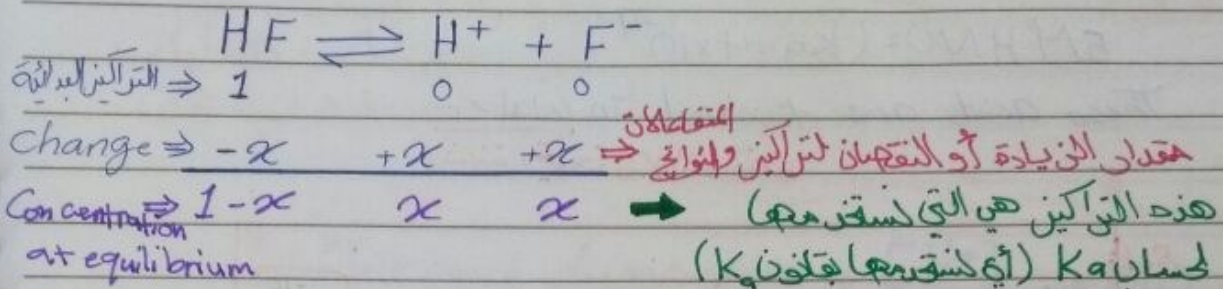 HF ⇌ H⁺ + F⁻
التراكيز البدائية ⇒ 1 0 0
Change ⇒ -x +x +x ⇒ مقدار الزيادة أو النقصان لتراكيز المتفاعلات والنواتج
Concentration ⇒ 1-x x x ➡ هذه التراكيز هي التي نستخدمها
at equilibrium لحساب Ka (أي نستخدمها بقانون Ka)